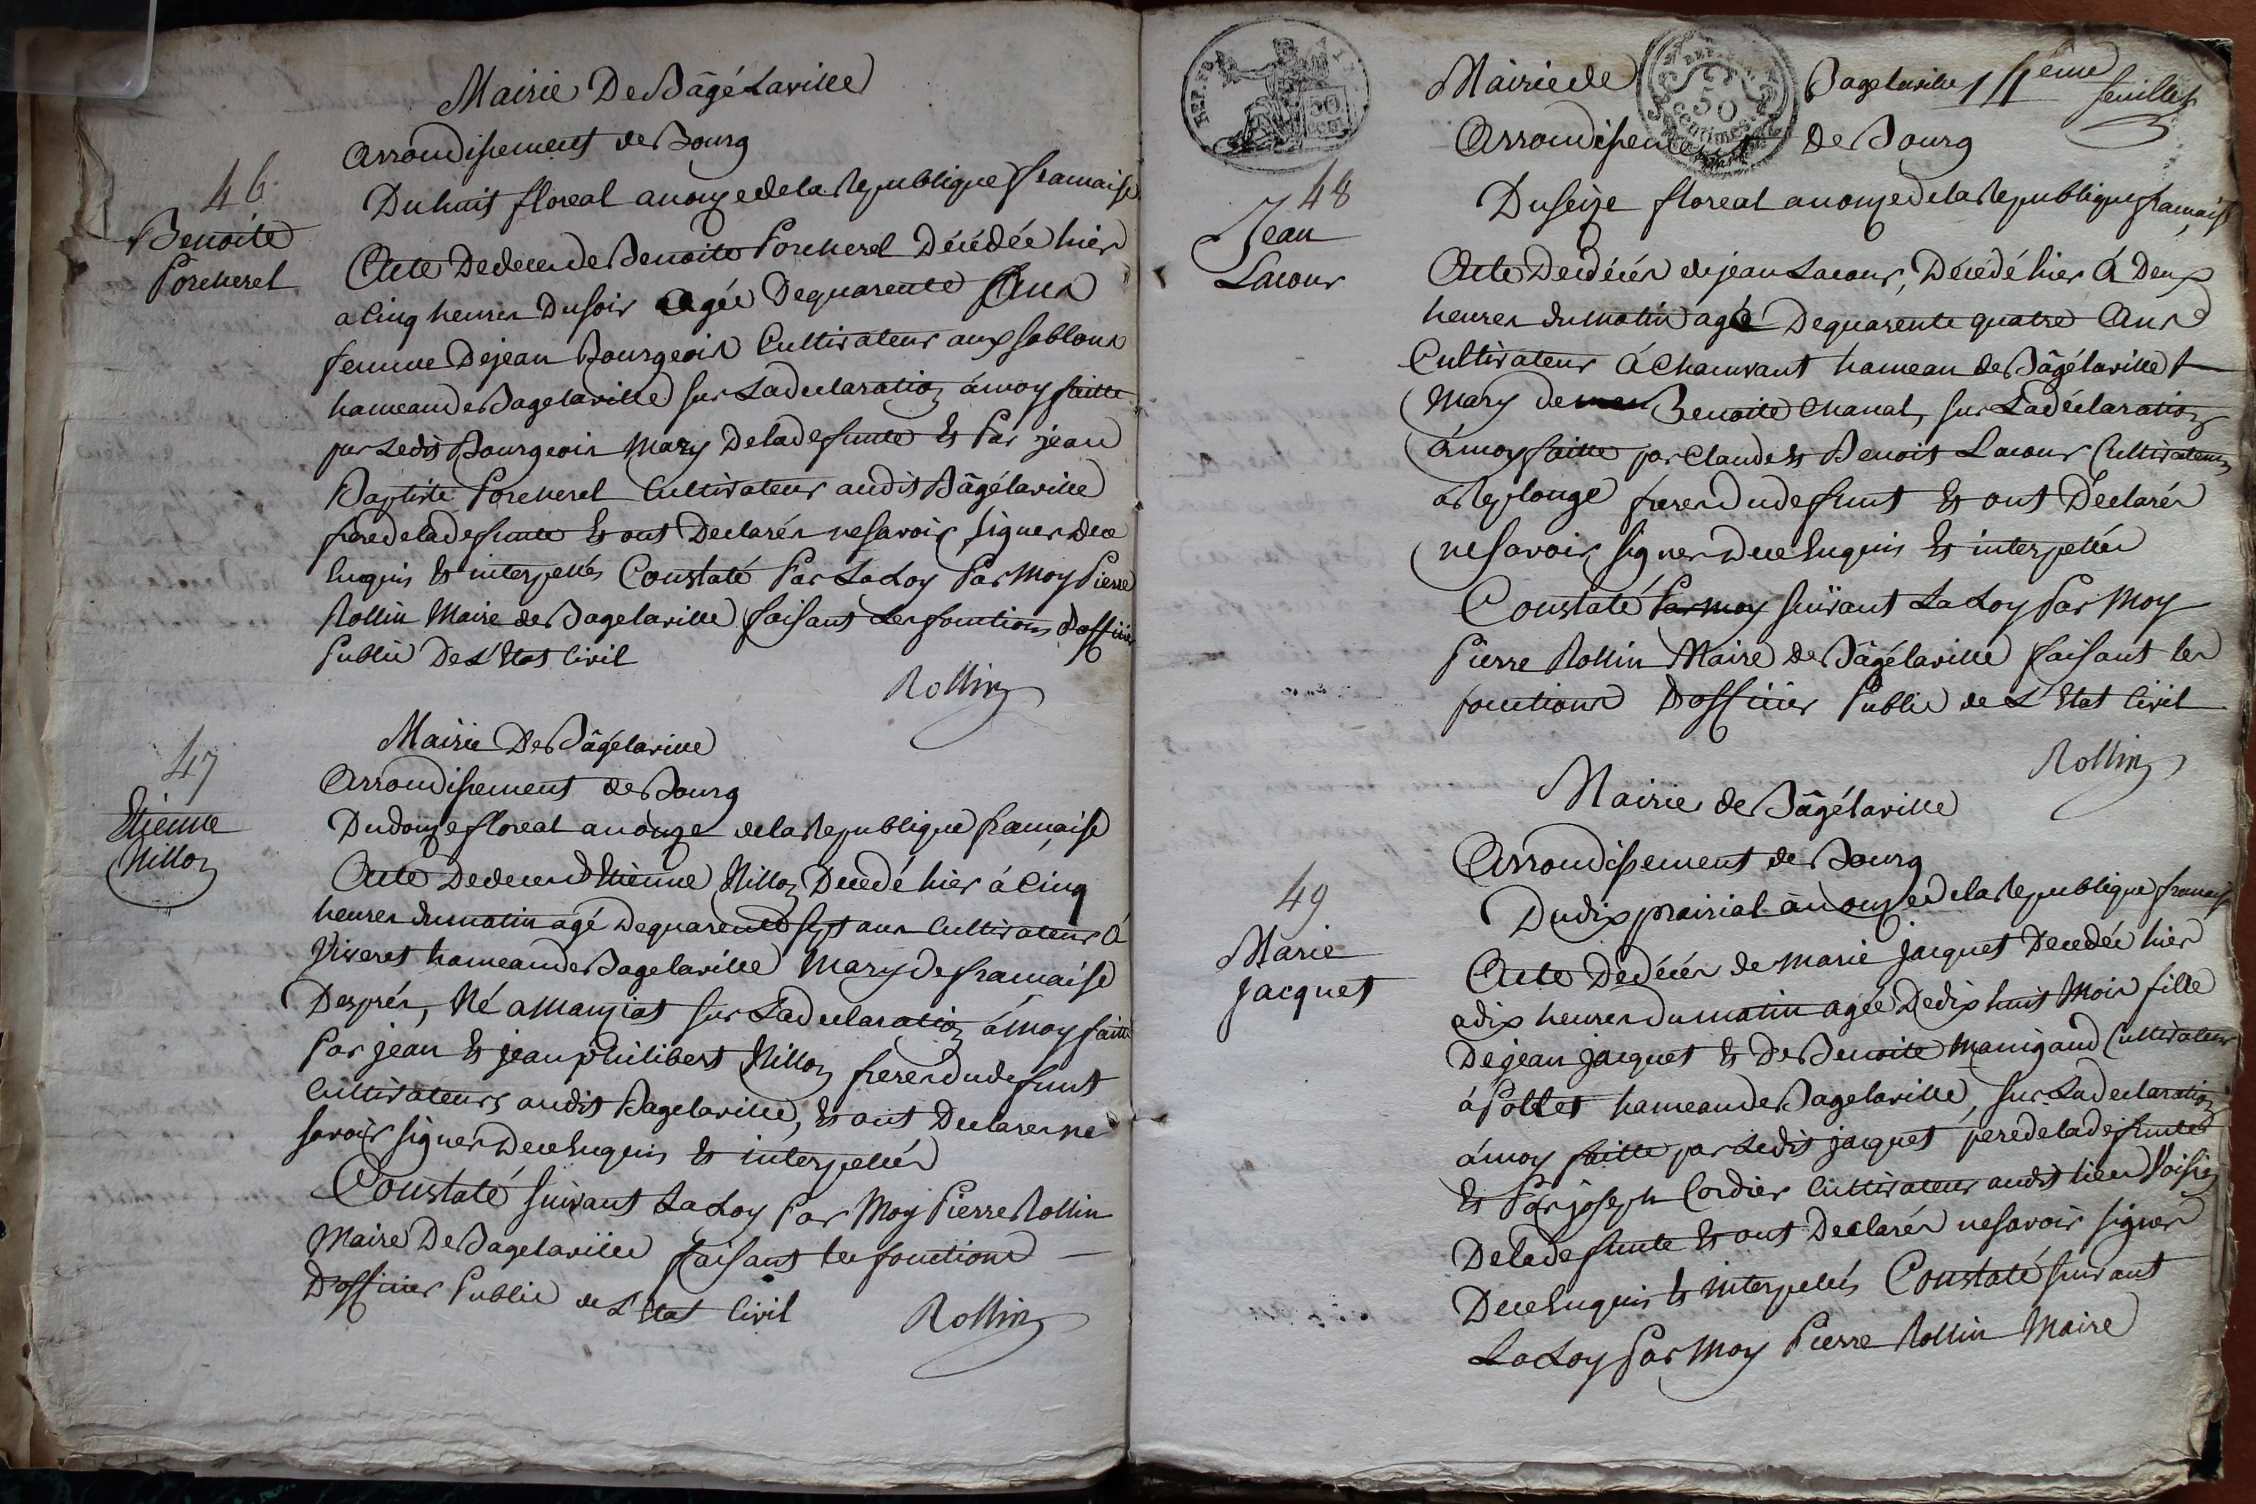 Mairie De Bâgé Laville
Arrondissement de Bourg
46
Benoite
Porcherel
Du huit floreal an onze de la Republique francaise
Acte De deces de Benoite Porcherel Décédée hier
a Cinq heures Du soir Agée De quarente Ans
femme De jean Bourgeois Cultivateur aux sablons
hameau de Bagelaville sur La declaration á moy faitte
par Ledit Bourgeois Mary De la defunte Et Par jean
Baptiste Porcherel Cultivateur audit Bâgélaville
frere de la defunte Et ont Declarés ne savoir signer De ce
Enquis Et interpellés Constaté Par La Loy Par Moy Pierre
Rollin Maire de Bagelaville faisant Les fonctions d'officier
Public De L'Etat Civil
Rollin
47
Etienne
Nillon
Mairie De Bâgélaville
Arrondissement de Bourg
Du douze floreal an onze de la Republique francaise
Acte De deces D'Etienne Nillon Décédé hier á Cinq
heures du matin agé De quarente sept ans Cultivateur á
Viveret hameau de Bagelaville Mary de francaise
Després, Né a Manziat sur La declaration á Moy faitte
Par jean Et jean philibert Nillon freres du defunt
Cultivateurs audit Bagelaville, Et ont Declarer ne
savoir signer De ce Enquis Et interpellés
Constaté suivant La Loy Par Moy Pierre Rollin
Maire De Bagelaville faisant les fonctions
D'officier Public de L'Etat Civil
Rollin
REP. FRA.
50 CENT
REP.
50
Centimes
Mairie de Bagelaville 11eme feuillet
Arrondissement de Bourg
48
Jean
Lacour
Du seize floreal an onze De la Republique francaise
Acte De décés de jean Lacour, Décédé hier á Deux
heures du matin agé De quarente quatre Ans
Cultivateur á Chanvant hameau de Bâgélaville
Mary de Benoite Chanal, sur La déclaration
á moy faitte par Claude Et Benoit Lacour Cultivateurs
a Replonge freres du defunt Et ont Déclarés
ne savoir signer De ce Enquis Et interpellés
Constaté Par moy suivant La Loy Par Moy
Pierre Rollin Maire de Bâgélaville faisant les
fonctions D'officier Public de L'Etat Civil
Rollin
Mairie de Bâgélaville
Arrondissement de Bourg
49
Marie
Jacquet
Du dix prairial an onze de la Republique francaise
Acte De décés de marie jacquet Decedée hier
a dix heures du matin agée De dix huit Mois fille
De jean jacquet Et De Benoite Manigand Cultivateur
á Pottet hameau de Bagelaville, sur La declaration
á moy faitte par Ledit jacquet pere de la defunte
Et Par joseph Cordier Cultivateur audit lieu Voisin
De la defunte Et ont Declarés ne savoir signer
De ce Enquis Et interpellés Constaté suivant
La Loy Par Moy Pierre Rollin Maire